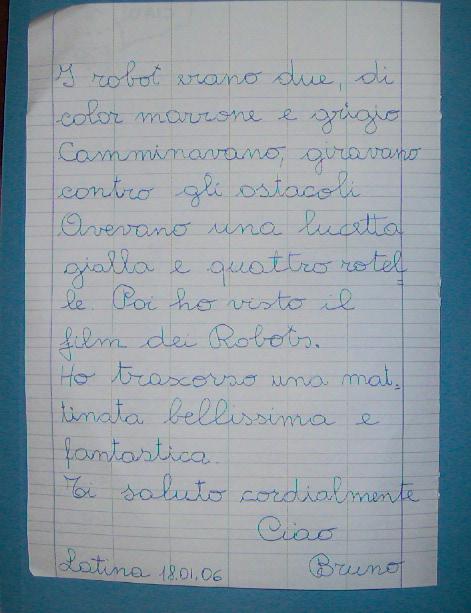 I robot erano due, di
color marrone e grigio
Camminavano, giravano
contro gli ostacoli
Avevano una lucetta
gialla e quattro rotel=
le. Poi ho visto il
film dei Robots.
Ho trascorso una mat=
tinata bellissima e
fantastica.
Ti saluto cordialmente
Ciao
Latina 18.01.06 Bruno